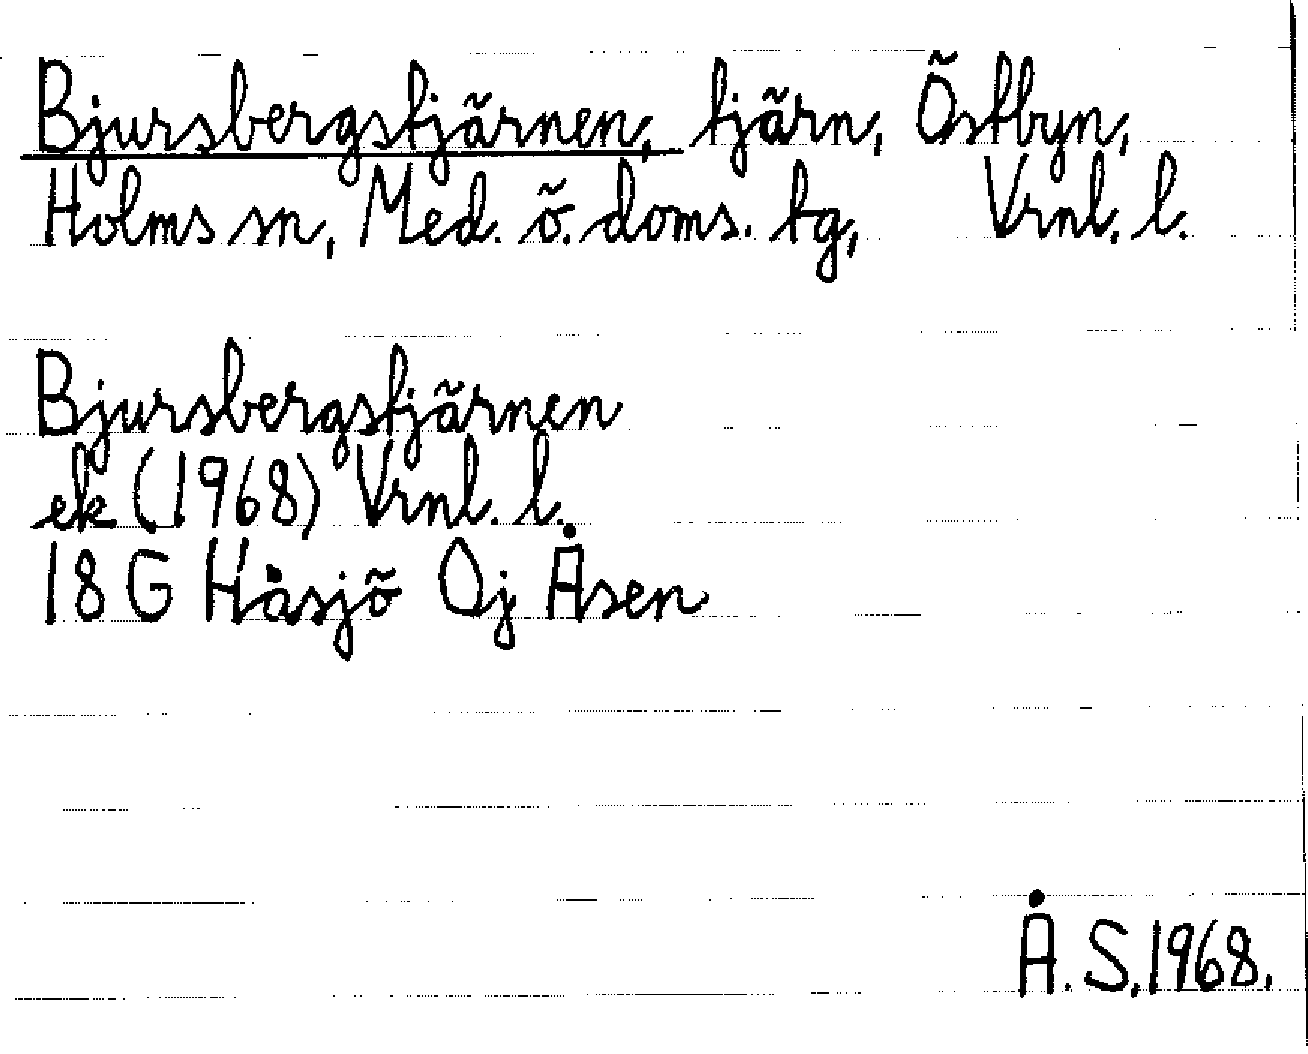 Bjursbergstjärnen, tjärn, Östbyn,
Holms sn, Med. ö. doms. tg, Vrnl. l.
Bjursbergstjärnen
ek (1968) Vrnl. l.
18 G Håsjö Oj Åsen
Å. S. 1968.